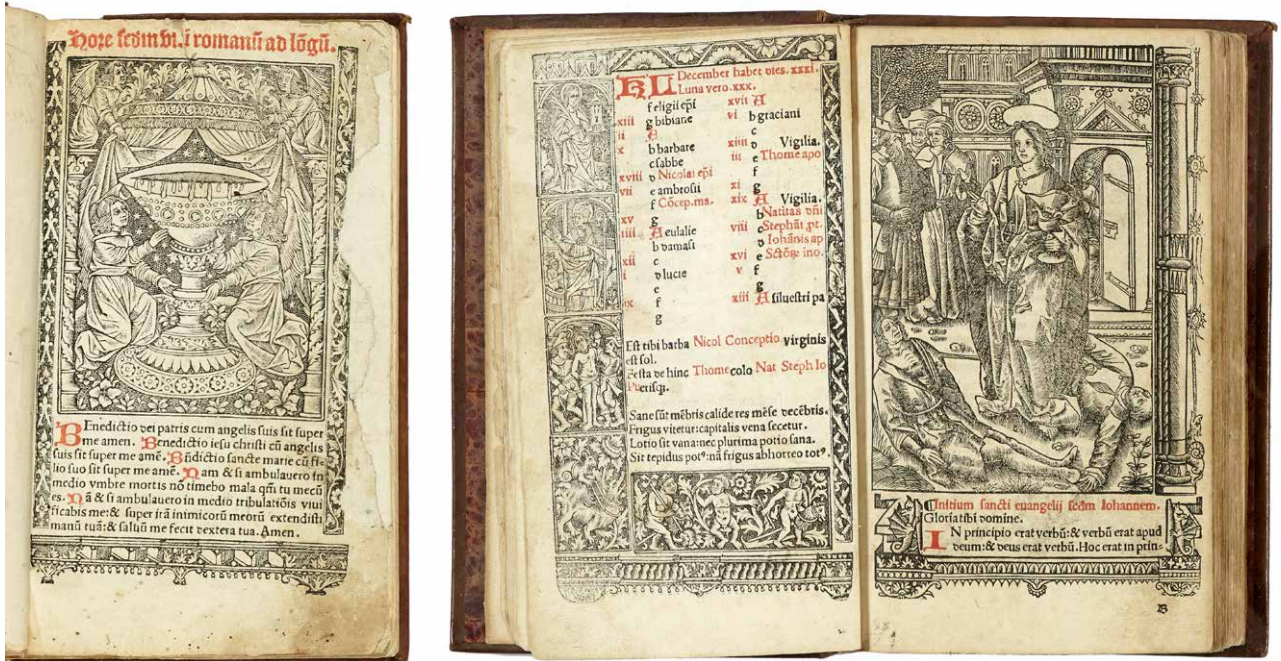 Hore scd̃m vsũ romanũ ad lõgũ.
BEnedictio dei patris cum angelis suis sit super
me amen. Benedictio iesu christi cũ angelis
suis sit super me amẽ. Bñdictio sancte marie cũ fi-
lio suo sit super me amẽ. Nam & si ambulauero in
medio vmbre mortis nõ timebo mala qm̃ tu mecũ
es. Nã & si ambulauero in medio tribulatiõis viui
ficabis me: & super irã inimicorũ meorũ extendisti
manũ tuã: & saluũ me fecit dextera tua. Amen.
KL December habet dies. xxxi.
Luna vero. xxx.
f eligii ep̃i
xiii g bibiane
ii A
x b barbare
c sabbe
xviii d Nicolai ep̃i
vii e ambrosii
f Cõcep. ma.
xv g
iiii A eulalie
b damasi
xii c
i d lucie
e
ix f
g
xvii A
vi b graciani
c
xiiii d Vigilia.
iii e Thome apo
f
xi g
xix A Vigilia.
b Natiuitas dñi
viii c Stephãi pt.
d Iohãnis ap
xvi e Sctõrũ ino.
v f
g
xiii A siluestri pa
Est tibi barba Nicol Conceptio virginis
est sol.
Festa de hinc Thome colo Nat Steph Io
Puerisq̃.
Sane sũt mẽbris calide res mẽse decẽbris.
Frigus vitetur: capitalis vena secetur.
Lotio sit vana: nec plurima potio sana.
Sit tepidus potꝰ: nã frigus abhorreo totꝰ.
Initium sancti euangelij scd̃m Iohannem.
Gloria tibi domine.
IN principio erat verbũ: & verbũ erat apud
deum: & deus erat verbũ. Hoc erat in prin-
B